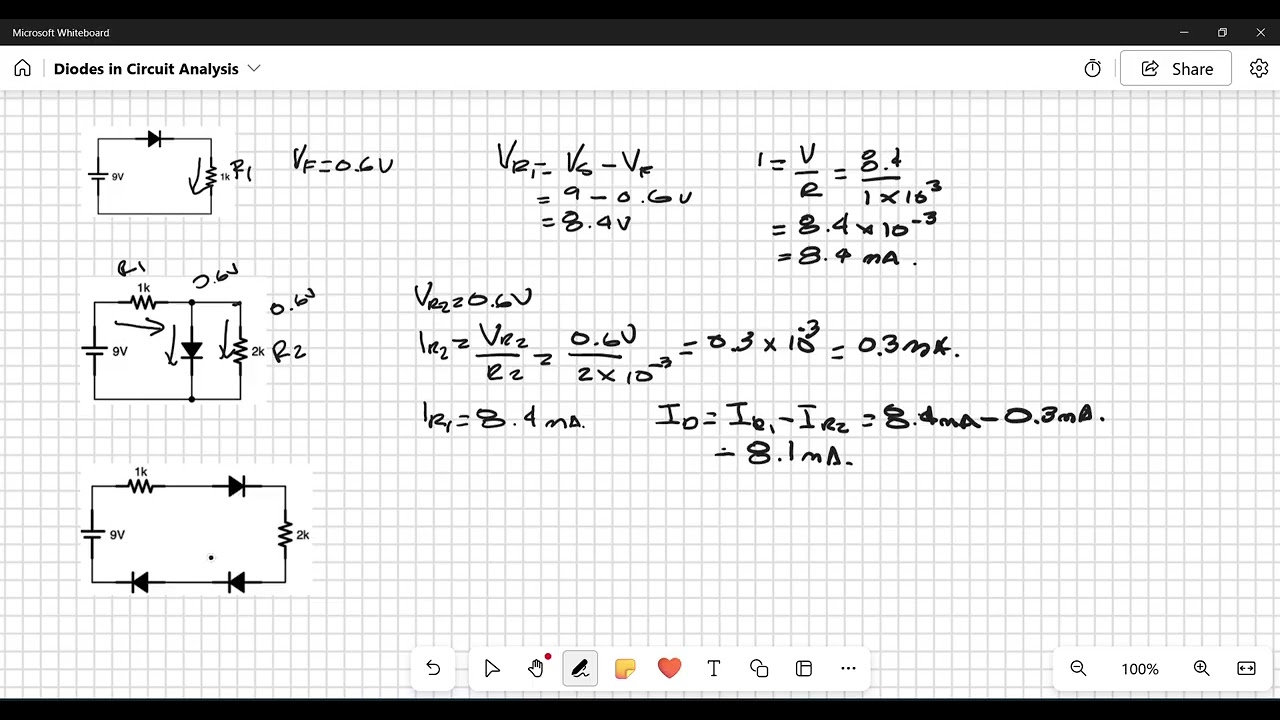 Microsoft Whiteboard
Diodes in Circuit Analysis
Share
9V
1k R1
VF=0.6V
VR1= VS – VF
= 9 – 0.6V
= 8.4V
I = V/R = 8.4/1×10³
= 8.4×10⁻³
= 8.4 mA.
R1
1k
0.6V
0.6V
9V
2k R2
VR2=0.6V
IR2= VR2/R2 = 0.6V/2×10⁻³ = 0.3×10⁻³ = 0.3mA.
IR1=8.4mA.
ID= IR1–IR2 =8.4mA–0.3mA.
= 8.1mA.
1k
9V
2k
T
100%